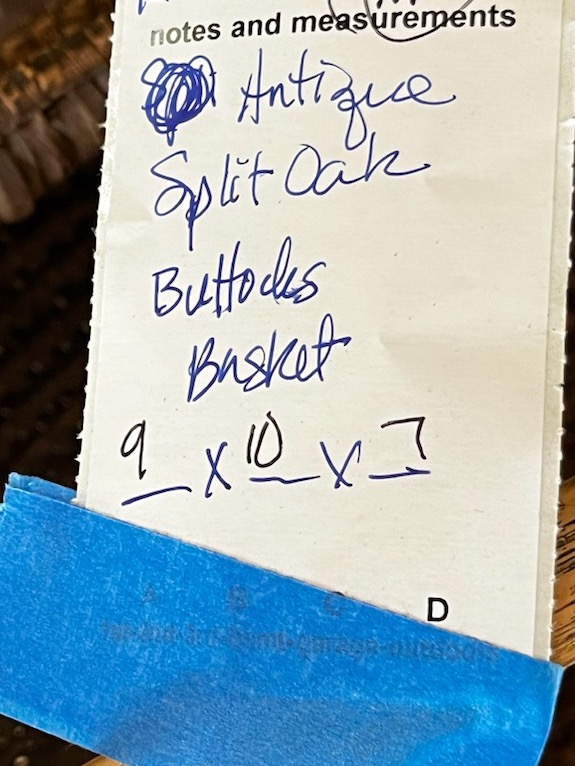 notes and measurements
Antique
Split Oak
Buttocks
Basket
9 x 10 x 7
D